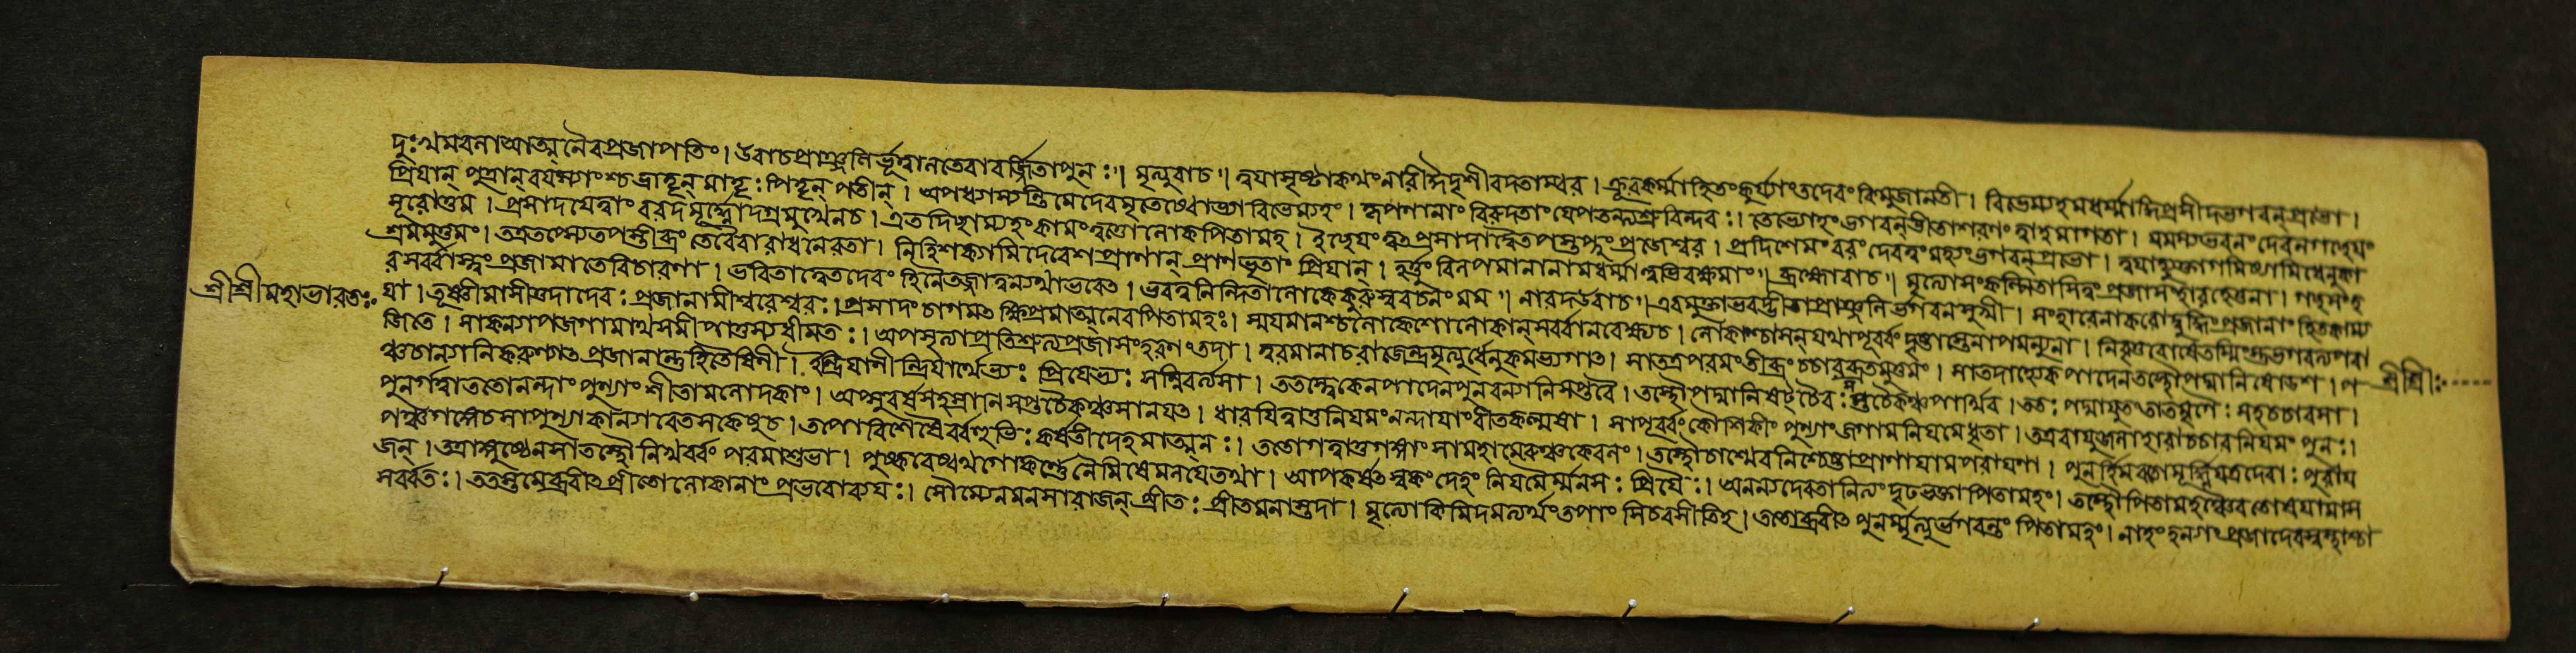 দুঃখমবনাআত্মনৈবপ্রজাপতিং। উবাচপ্রাঞ্জলির্ভূত্বালতেবাবর্জ্জিতাপুনঃ॥ মৃত্যুরুবাচ॥ ত্বযাসৃষ্টাকথংনারীদৃশীবদতাম্বর। ক্রূরকর্ম্মাহিতংকুর্য্যাংতদেবংকিমুজানতী। বিভেম্যহমধর্ম্মাদ্ধিপ্রসীদভগবন্প্রভো।
প্রিযান্ পুত্রান্ বযস্যাংশ্চভ্রাতৄন্ মাতৄঃ পিতৄন্ পতীন্। অপধ্যাস্যন্তিমেদেবমৃতেষ্বেভ্যোবিভেম্যহং। কৃপণানাং বিরুদতাং যেপতন্ত্যশ্রুবিন্দবঃ। তেভ্যোহংভগবন্ভীতাশরণং ত্বাহমাগতা। যমস্যভবনংদেবনগচ্ছেযং
সূরোত্তম। প্রসাদযেত্বাং বরদমূর্দ্ধ্নোদগ্রমুখেনচ। এতদিচ্ছাম্যহংকামংত্বত্তোলোকপিতামহ। ইচ্ছেযংত্বৎপ্রসাদাদ্ধিতপস্তপ্তুংপ্রজেশ্বর। প্রদিশেমংবরংদেবত্বংমহ্যংভগবন্প্রভো। ত্বযাহ্যুক্তাগমিষ্যামিধেনুকা
শ্রমমুত্তমং। তত্রতপ্স্যেতপস্তীব্রং তবৈবারাধনেরতা। নহিশক্ষ্যামিদেবেশপ্রাণান্ প্রাণভৃতাং প্রিযান্। হর্ত্তুংবিলপমানানামধর্ম্মাদভিরক্ষমাং॥ ব্রহ্মোবাচ॥ মৃত্যোসংকল্পিতাসিত্বংপ্রজাসংহারহেতুনা। গচ্ছসংহ
রসর্ব্বাস্ত্বংপ্রজামাতেবিচারণা। ভবিতাত্বেতদেবং হিনৈতজ্জাত্বন্যথাভবেৎ। ভবত্বনিন্দিতালোকেকুরুষ্ববচনংমম॥ নারদউবাচ॥ এবমুক্তাভবদ্ভীতাপ্রাঞ্জলির্ভগবন্মুখী। সংহারেনাকরোদ্বুদ্ধিংপ্রজানাংহিতকাম্য
শ্রীশ্রীমহাভারতঃ যা। তূষ্ণীমাসীত্তদাদেবঃ প্রজানামীশ্বরেশ্বরঃ। প্রসাদংচাগমৎক্ষিপ্রমাত্মনৈবপিতামহঃ। স্মযমানশ্চলোকেশোলোকান্সর্ব্বানবেক্ষ্যচ। লোকাশ্চাসন্যথাপূর্ব্বংদৃষ্টাস্তেনাপমন্যুনা। নিবৃত্তরোষেতস্মিংস্তুভগবত্যপরা
জিতে। সাকন্যাপজগামাথসমীপাত্তস্যধীমতঃ। অপসৃত্যাপ্রতিশ্রুত্যপ্রজাসংহরণংতদা। ত্বরমাণাচরাজেন্দ্রমৃত্যুর্ধেনুকমভ্যগাৎ। সাতত্রপরমংতীব্রংচচারব্রতমুত্তমং। সাতদাহ্যেকপাদেনতস্থৌপদ্মানিষোডশ। প শ্রীশ্রীঃ
ঞ্চচান্যানিকারুণ্যাৎ প্রজানান্তুহিতৈষিণী। ইন্দ্রিযাণীন্দ্রিযার্থেভ্যঃ প্রিযেভ্যঃ সন্নিবর্ত্যসা। ততস্ত্বেকেনপাদেনপুনরন্যানিসপ্তবৈ। তস্থৌপদ্মানিষট্চৈবসপ্তচৈকঞ্চপার্থিব। ততঃ পদ্মাযুতংতাতমৃগৈঃ সহচচারসা।
পুনর্গত্বাততোনন্দাং পুণ্যাং শীতামলোদকাং। অপ্সুবর্ষসহস্রাণিসপ্তচৈকঞ্চসানযৎ। ধারযিত্বাতুনিযমংনন্দাযাংবীতকল্মষা। সাপূর্ব্বংকৌশিকীংপুণ্যাংজগামনিযমেধৃতা। তত্রবাযুজলাহারাচচারনিযমংপুনঃ।
পঞ্চগঙ্গেচসাপুণ্যাকন্যাবেতসকেষুচ। তপোবিশেষৈর্বহুভিঃ কর্ষতীদেহমাত্মনঃ। ততোগত্বাতুগঙ্গাংসামহামেরুঞ্চকেবলং। তস্থৌচাশ্মেবনিশ্চেষ্টাপ্রাণাযামপরাযণা। পুনর্হিমবতোমূর্দ্ধ্নিযত্রদেবাঃ পুরায
জন্। তত্রাঙ্গুষ্ঠেনসাতস্থৌনিখর্ব্বং পরমাশুভা। পুষ্করেষ্বথগোকর্ণেনৈমিষেমলযেতথা। অপকর্ষৎস্বকংদেহং নিযমৈর্ম্মনসঃ প্রিযৈঃ। অনন্যদেবতানিত্যংদৃঢভক্তাপিতামহং। তস্থৌপিতামহঞ্চৈবতোষযামাস
সর্ব্বতঃ। ততস্তামব্রবীৎপ্রীতোলোকানাংপ্রভবোব্যযঃ। সৌম্যেনমনসারাজন্ প্রীতঃ প্রীতমনাস্তদা। মৃত্যোকিমিদমত্যর্থংতপাংসিচরসীতিহ। ততোব্রবীৎপুনর্ম্মৃত্যুর্ভগবন্তংপিতামহং। নাহংহন্যাংপ্রজাদেবস্বস্থাশ্চা